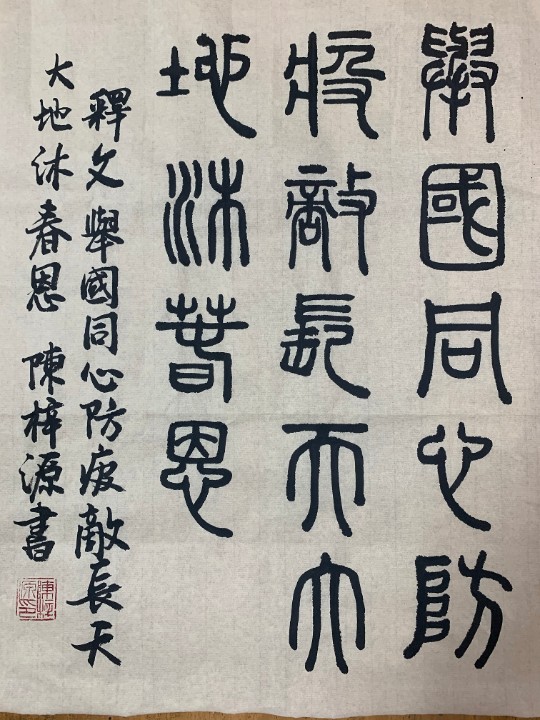 舉國同心防
疫敵長天大
地沐春恩
釋文舉國同心防疫敵長天
大地沐春恩 陳梓源書
陳梓源印